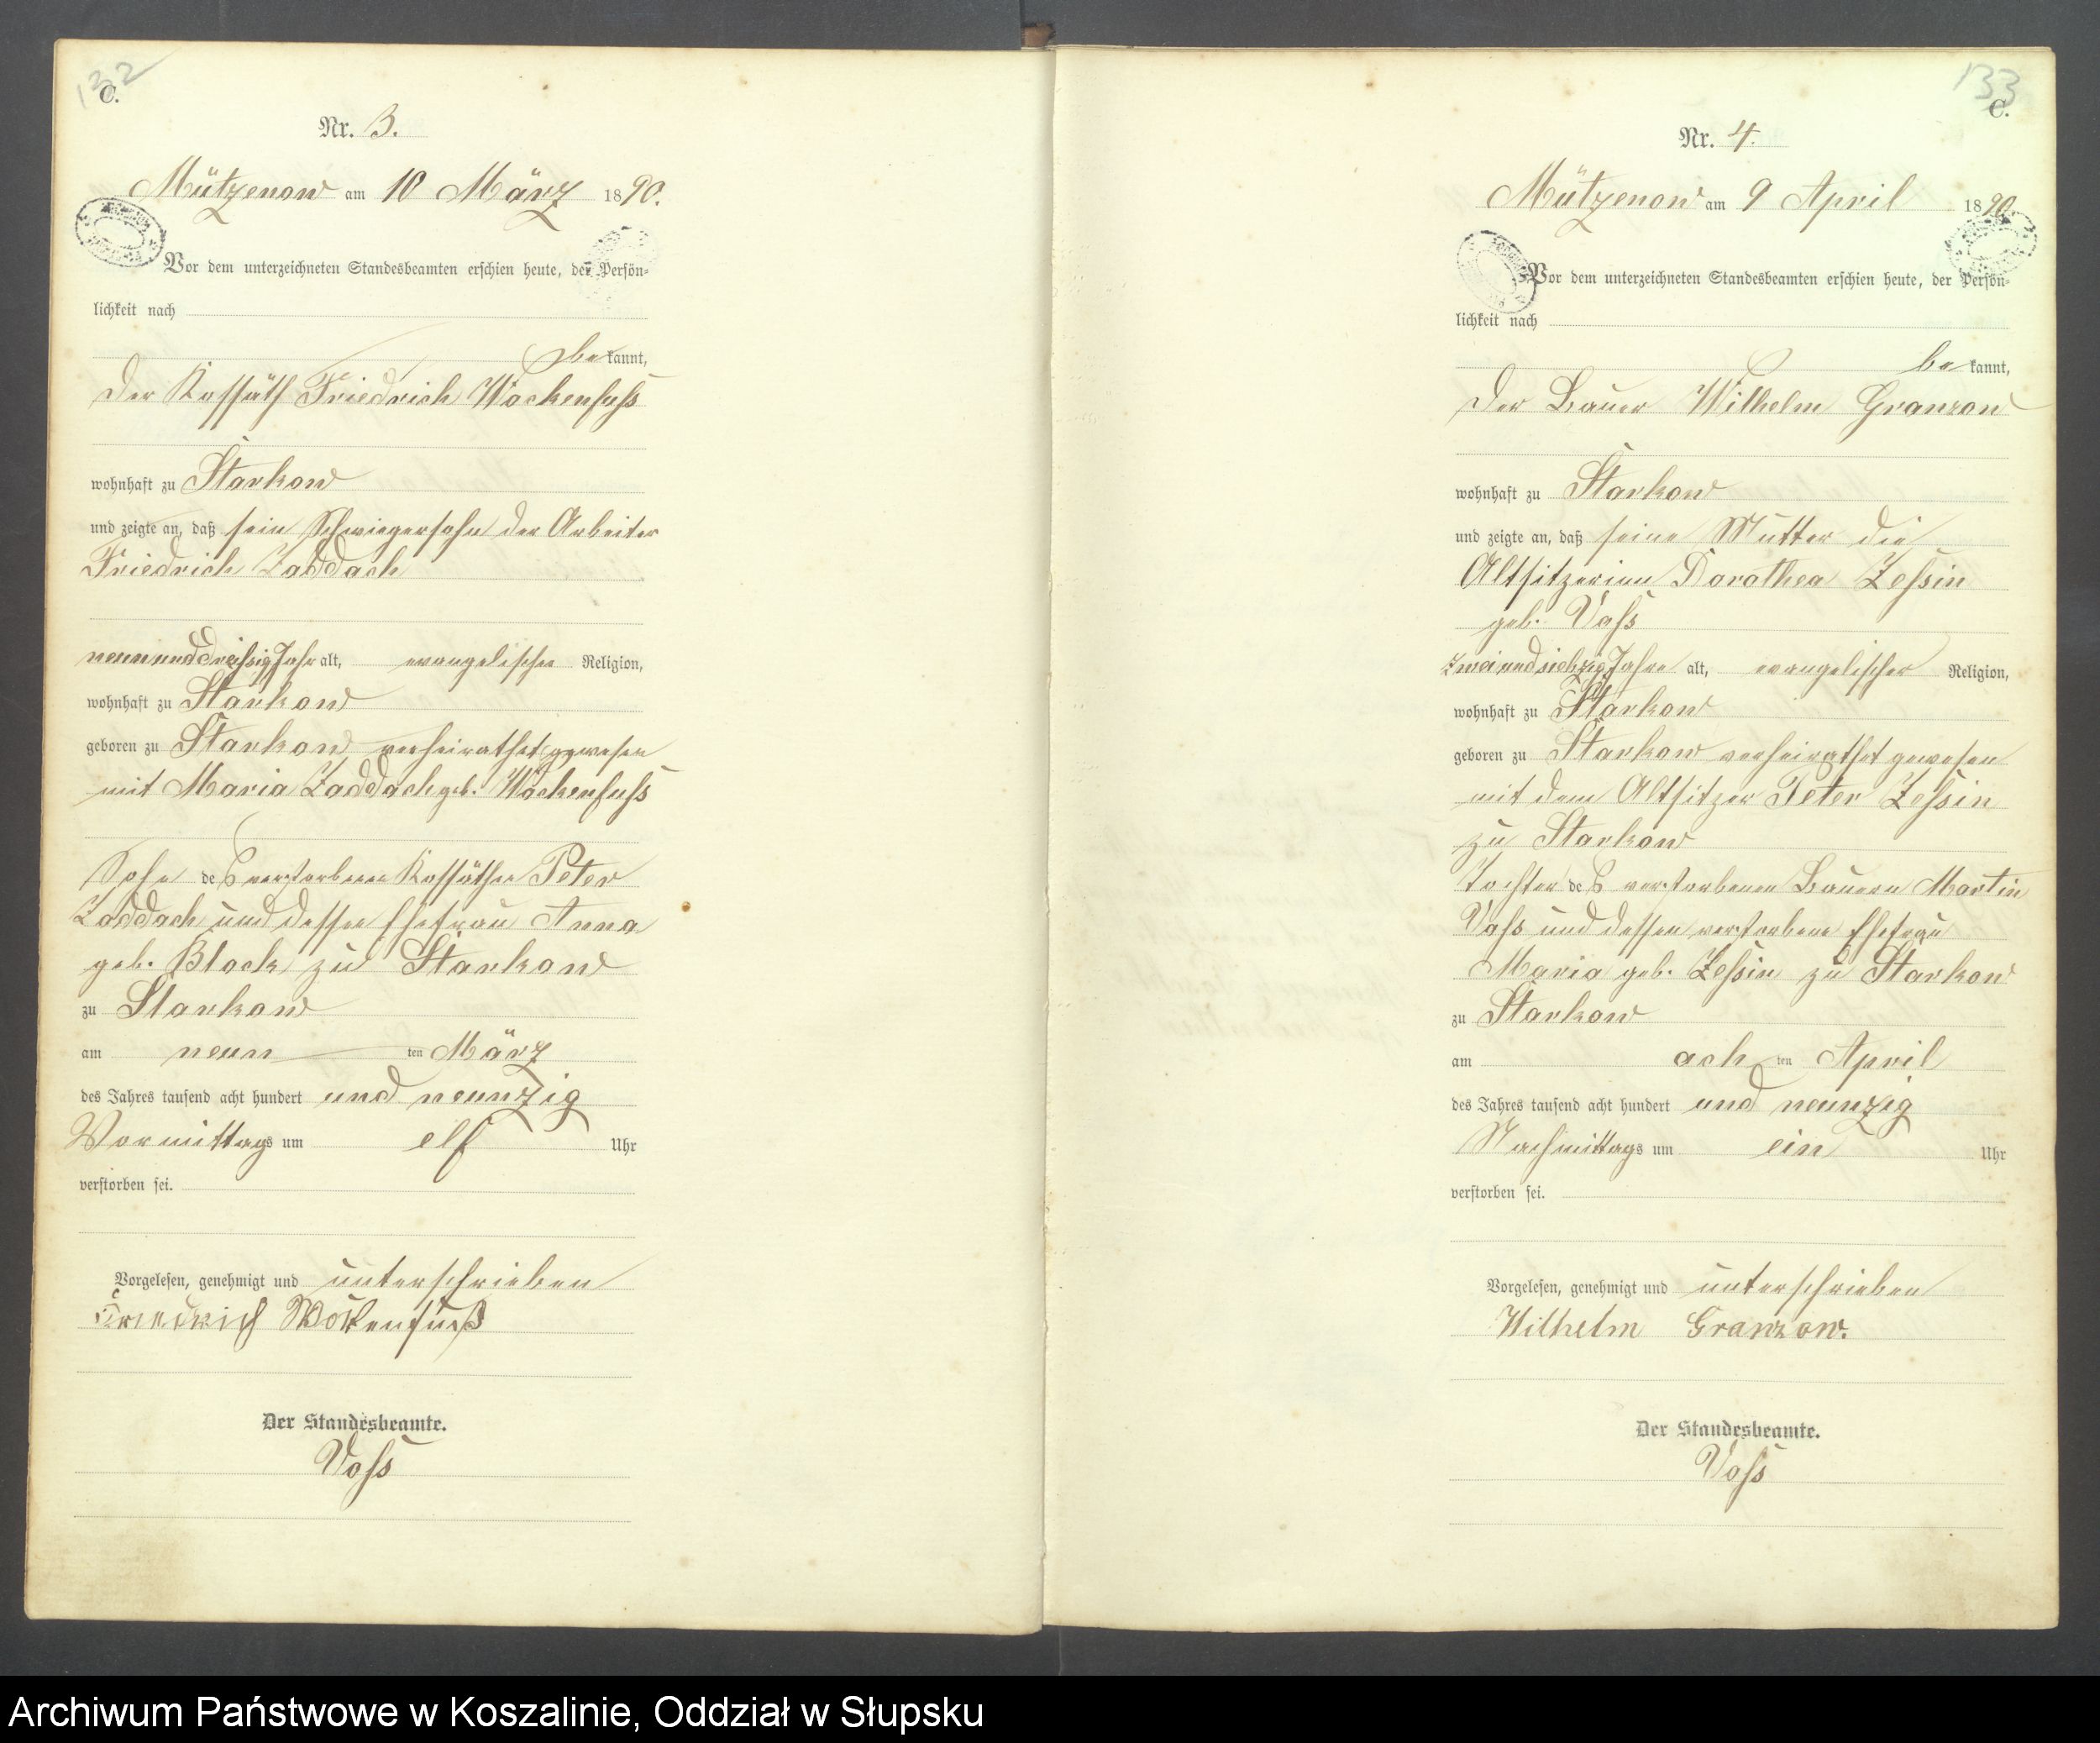 132
C.
Nr. 3.
Mützenow am 10 März 1890.
Vor dem unterzeichneten Standesbeamten erschien heute, der Persön-
lichkeit nach
bekannt,
der Kossäth Friedrich Wockenfuss
wohnhaft zu Starkow
und zeigte an, daß sein Schwiegersohn der Arbeiter
Friedrich Zaddach
neununddreissig Jahr alt, evangelischer Religion,
wohnhaft zu Starkow
geboren zu Starkow verheirathet gewesen
mit Maria Zaddach geb. Wockenfuss
Sohn des verstorbenen Kossäthen Peter
Zaddach und dessen Ehefrau Anna
geb. Block zu Starkow
zu Starkow
am neunten März
des Jahres tausend acht hundert und neunzig
Vormittags um elf Uhr
verstorben sei.
Vorgelesen, genehmigt und unterschrieben
Friedrich Wockenfuß
Der Standesbeamte.
Voss
133
C.
Nr. 4.
Mützenow am 9 April 1890
Vor dem unterzeichneten Standesbeamten erschien heute, der Persön-
lichkeit nach
bekannt,
der Bauer Wilhelm Granzow
wohnhaft zu Starkow
und zeigte an, daß seine Mutter die
Altsitzerinn Dorothea Zessin
geb. Vass
zweiundsiebzig Jahre alt, evangelischer Religion,
wohnhaft zu Starkow
geboren zu Starkow verheirathet gewesen
mit dem Altsitzer Peter Zessin
zu Starkow
Tochter des verstorbenen Bauern Martin
Vass und dessen verstorbene Ehefrau
Maria geb. Zessin zu Starkow
zu Starkow
am achten April
des Jahres tausend acht hundert und neunzig
Nachmittags um ein Uhr
verstorben sei.
Vorgelesen, genehmigt und unterschrieben
Wilhelm Granzow.
Der Standesbeamte.
Voss
Archiwum Państwowe w Koszalinie, Oddział w Słupsku